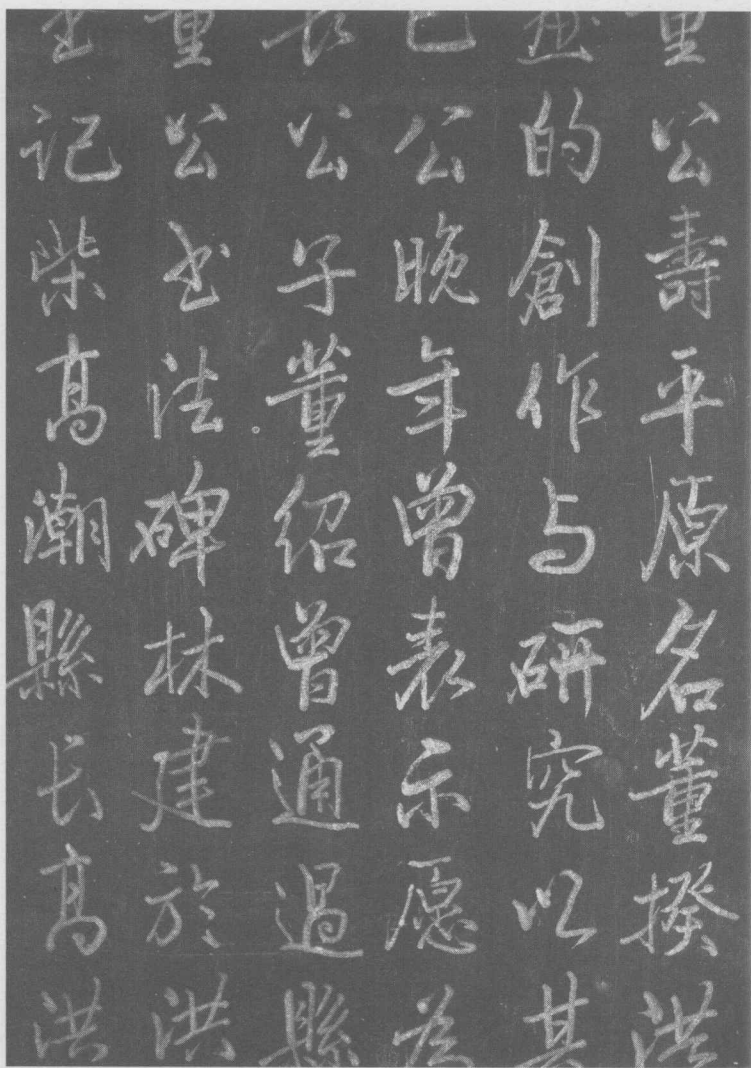 董公壽平原名董揆洪
画的創作与研究以其
已公晚年曾表示愿为
长公子董绍曾通過縣
董公书法碑林建於洪
记柴高潮縣长高洪